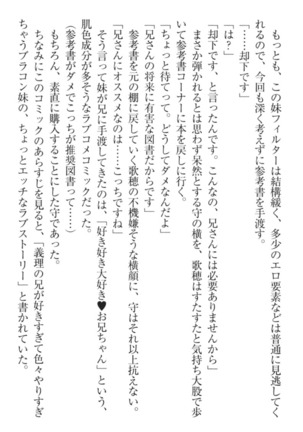 もっとも、この妹フィルターは結構緩く、多少のエロ要素などは普通に見逃してく
れるので、今回も深く考えずに参考書を手渡す。
「……却下です」
「は？」
「却下です、と言ったんです。こんなの、兄さんには必要ありませんから」
まさか弾かれるとは思わず呆然とする守の横を、歌穂はすたすたと気持ち大股で歩
いて参考書コーナーに本を戻しに行く。
「ちょっと待てって。どうしてダメなんだよ」
「兄さんの将来に有害な図書だからです」
参考書を元の棚に戻していく歌穂の不機嫌そうな横顔に、守はそれ以上抗えない。
「兄さんにオススメなのは……こっちですね」
そう言って妹が兄に手渡してきたのは、「好き好き大好き♥お兄ちゃん」という、
肌色成分が多そうなラブコメコミックだった。
（参考書がダメでこっちが推奨図書って……）
もちろん、素直に購入することにした守であった。
ちなみにこのコミックのあらすじを見ると、「義理の兄が好きすぎて色々やりすぎ
ちゃうブラコン妹の、ちょっとエッチなラブストーリー」と書かれていた。